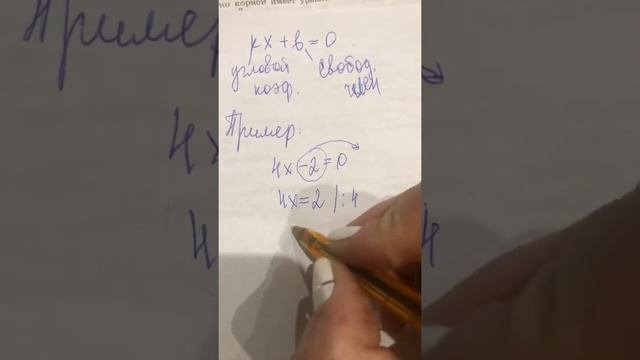 ко корней имеет уравн
kx + b = 0
угловой свобод.
коэф. член
Пример:
4x - 2 = 0
4x = 2 |: 4